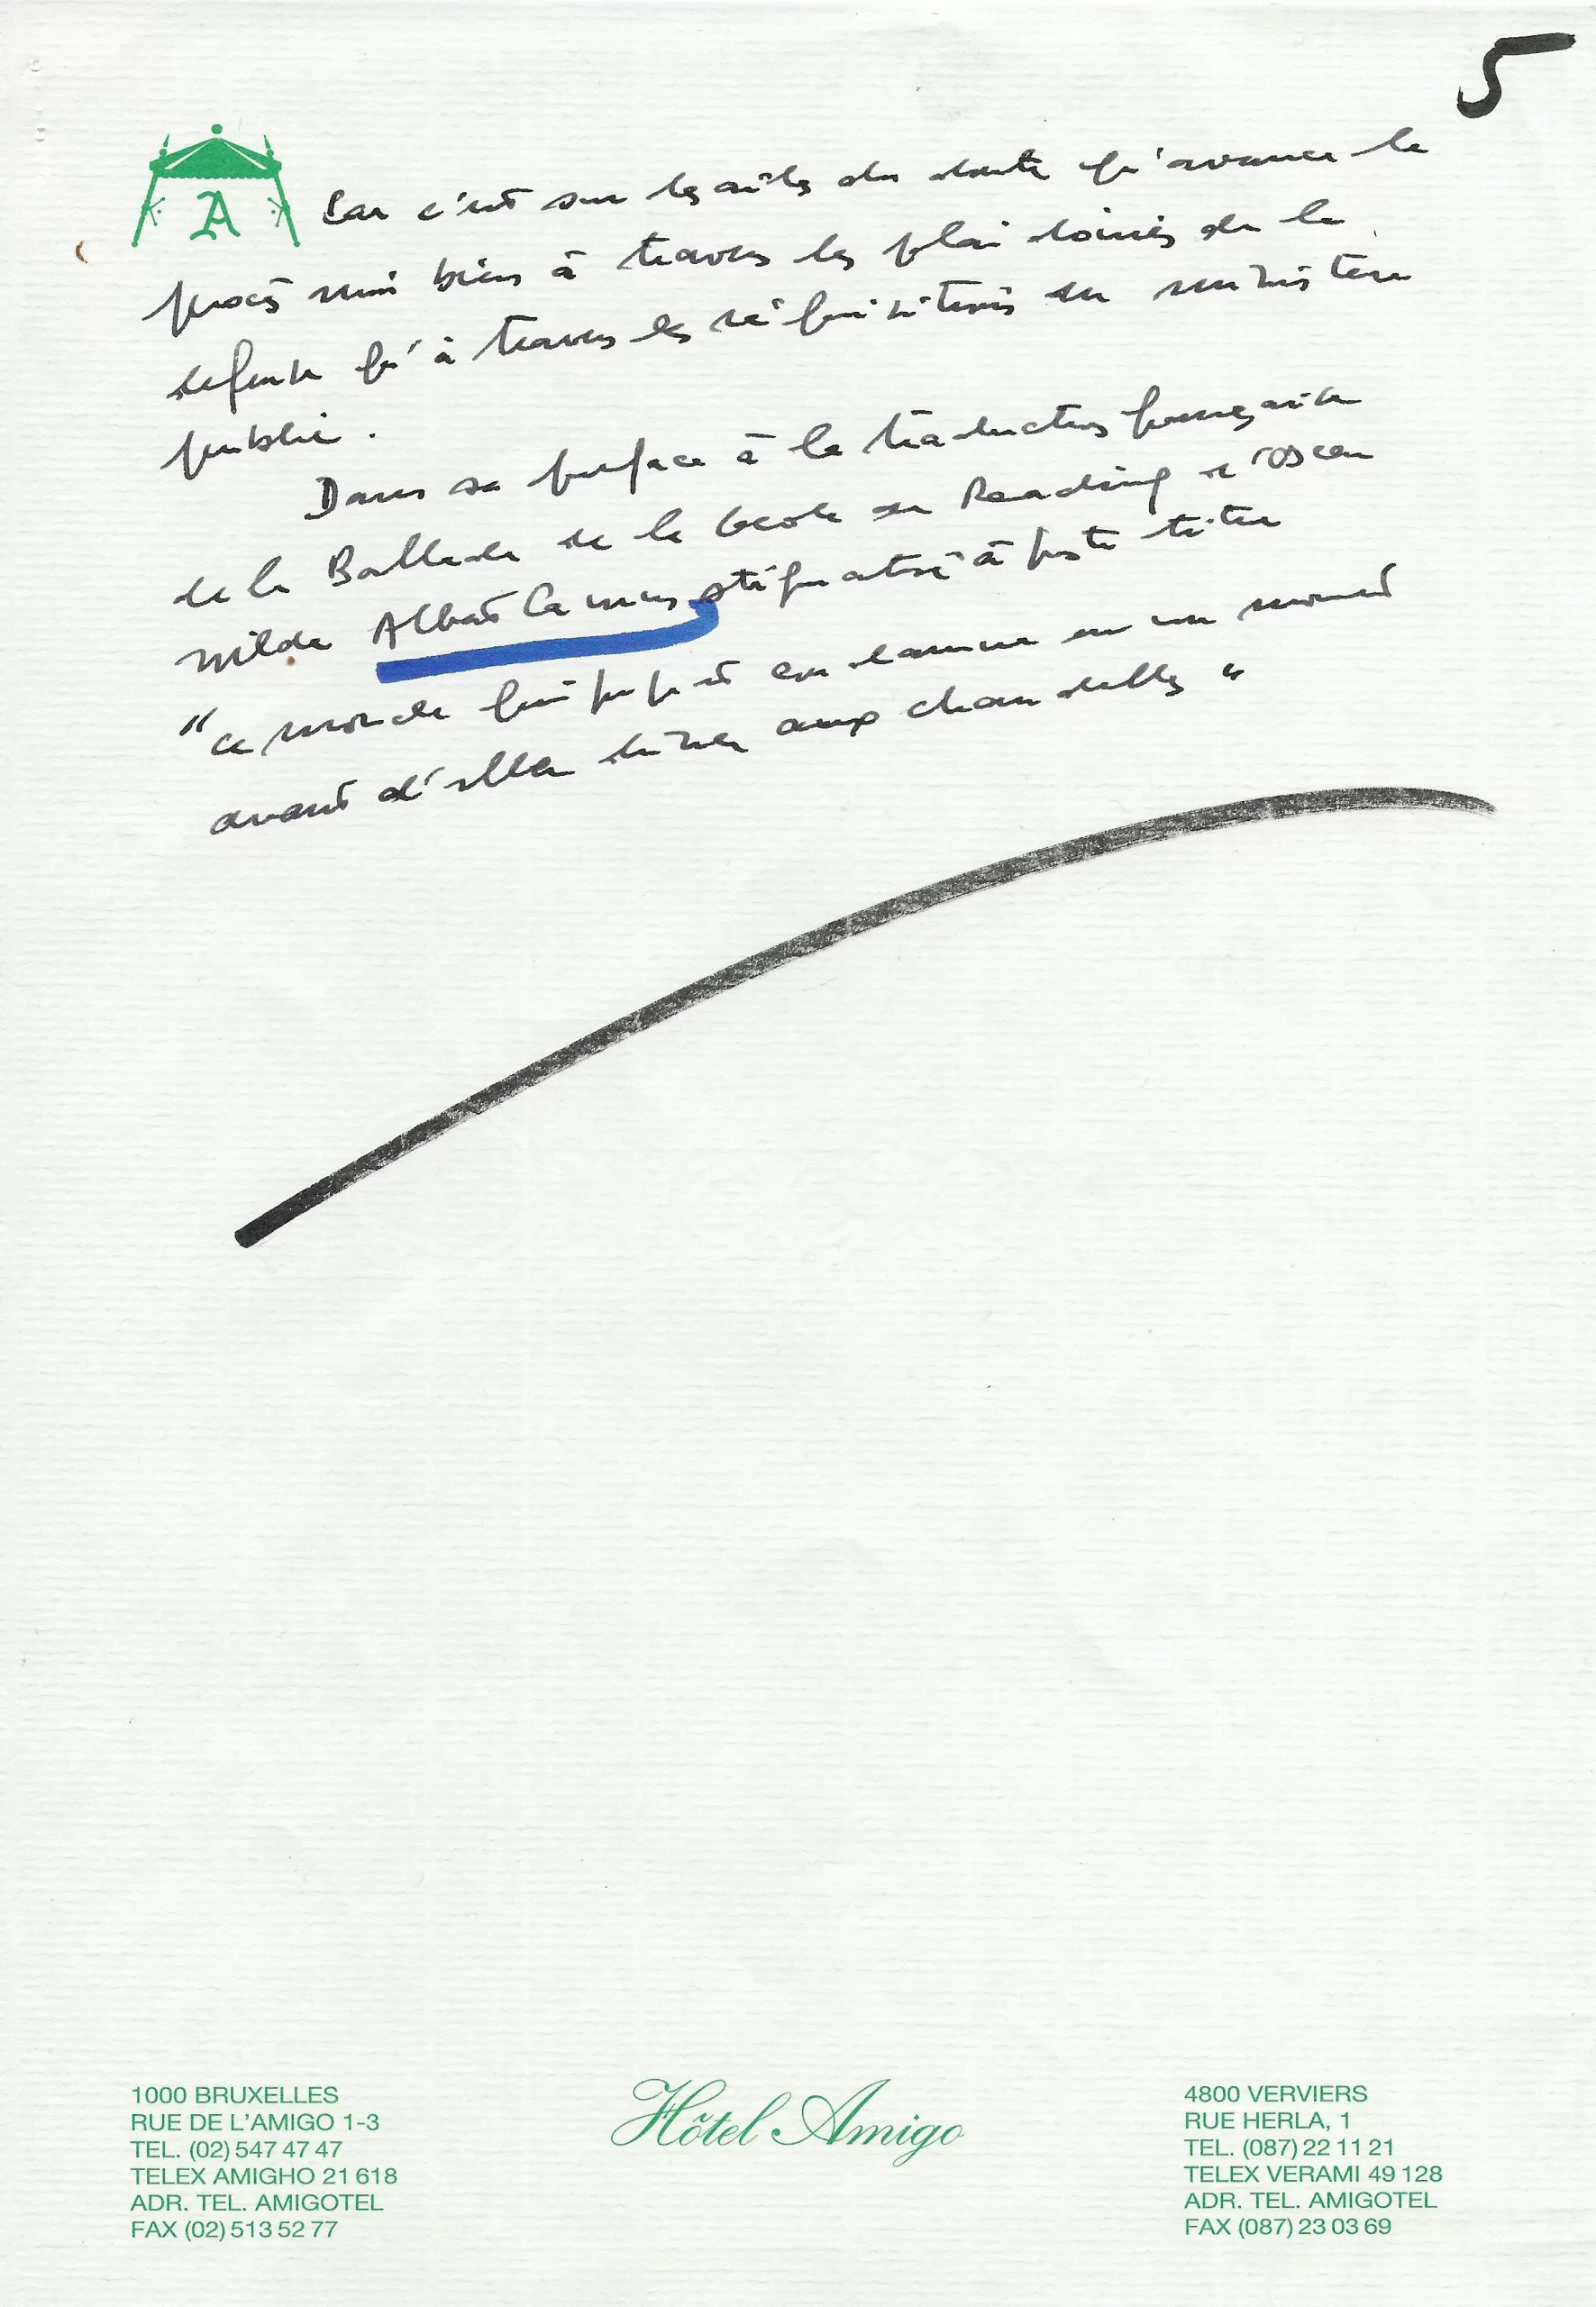 5
A
Car c'est sur les ailes du doute qu'avance le
procès aussi bien à travers les plaidoiries de la
défense qu'à travers les réquisitoires du ministère
public.
Dans sa préface à la traduction française
de la Ballade de la Geole de Reading d'Oscar
Wilde Albert Camus stigmatise à juste titre
"ce monde qui juge et condamne en un moment
avant d'aller dîner aux chandelles"
1000 BRUXELLES
RUE DE L'AMIGO 1-3
TEL. (02) 547 47 47
TELEX AMIGHO 21 618
ADR. TEL. AMIGOTEL
FAX (02) 513 52 77
Hôtel Amigo
4800 VERVIERS
RUE HERLA, 1
TEL. (087) 22 11 21
TELEX VERAMI 49 128
ADR. TEL. AMIGOTEL
FAX (087) 23 03 69